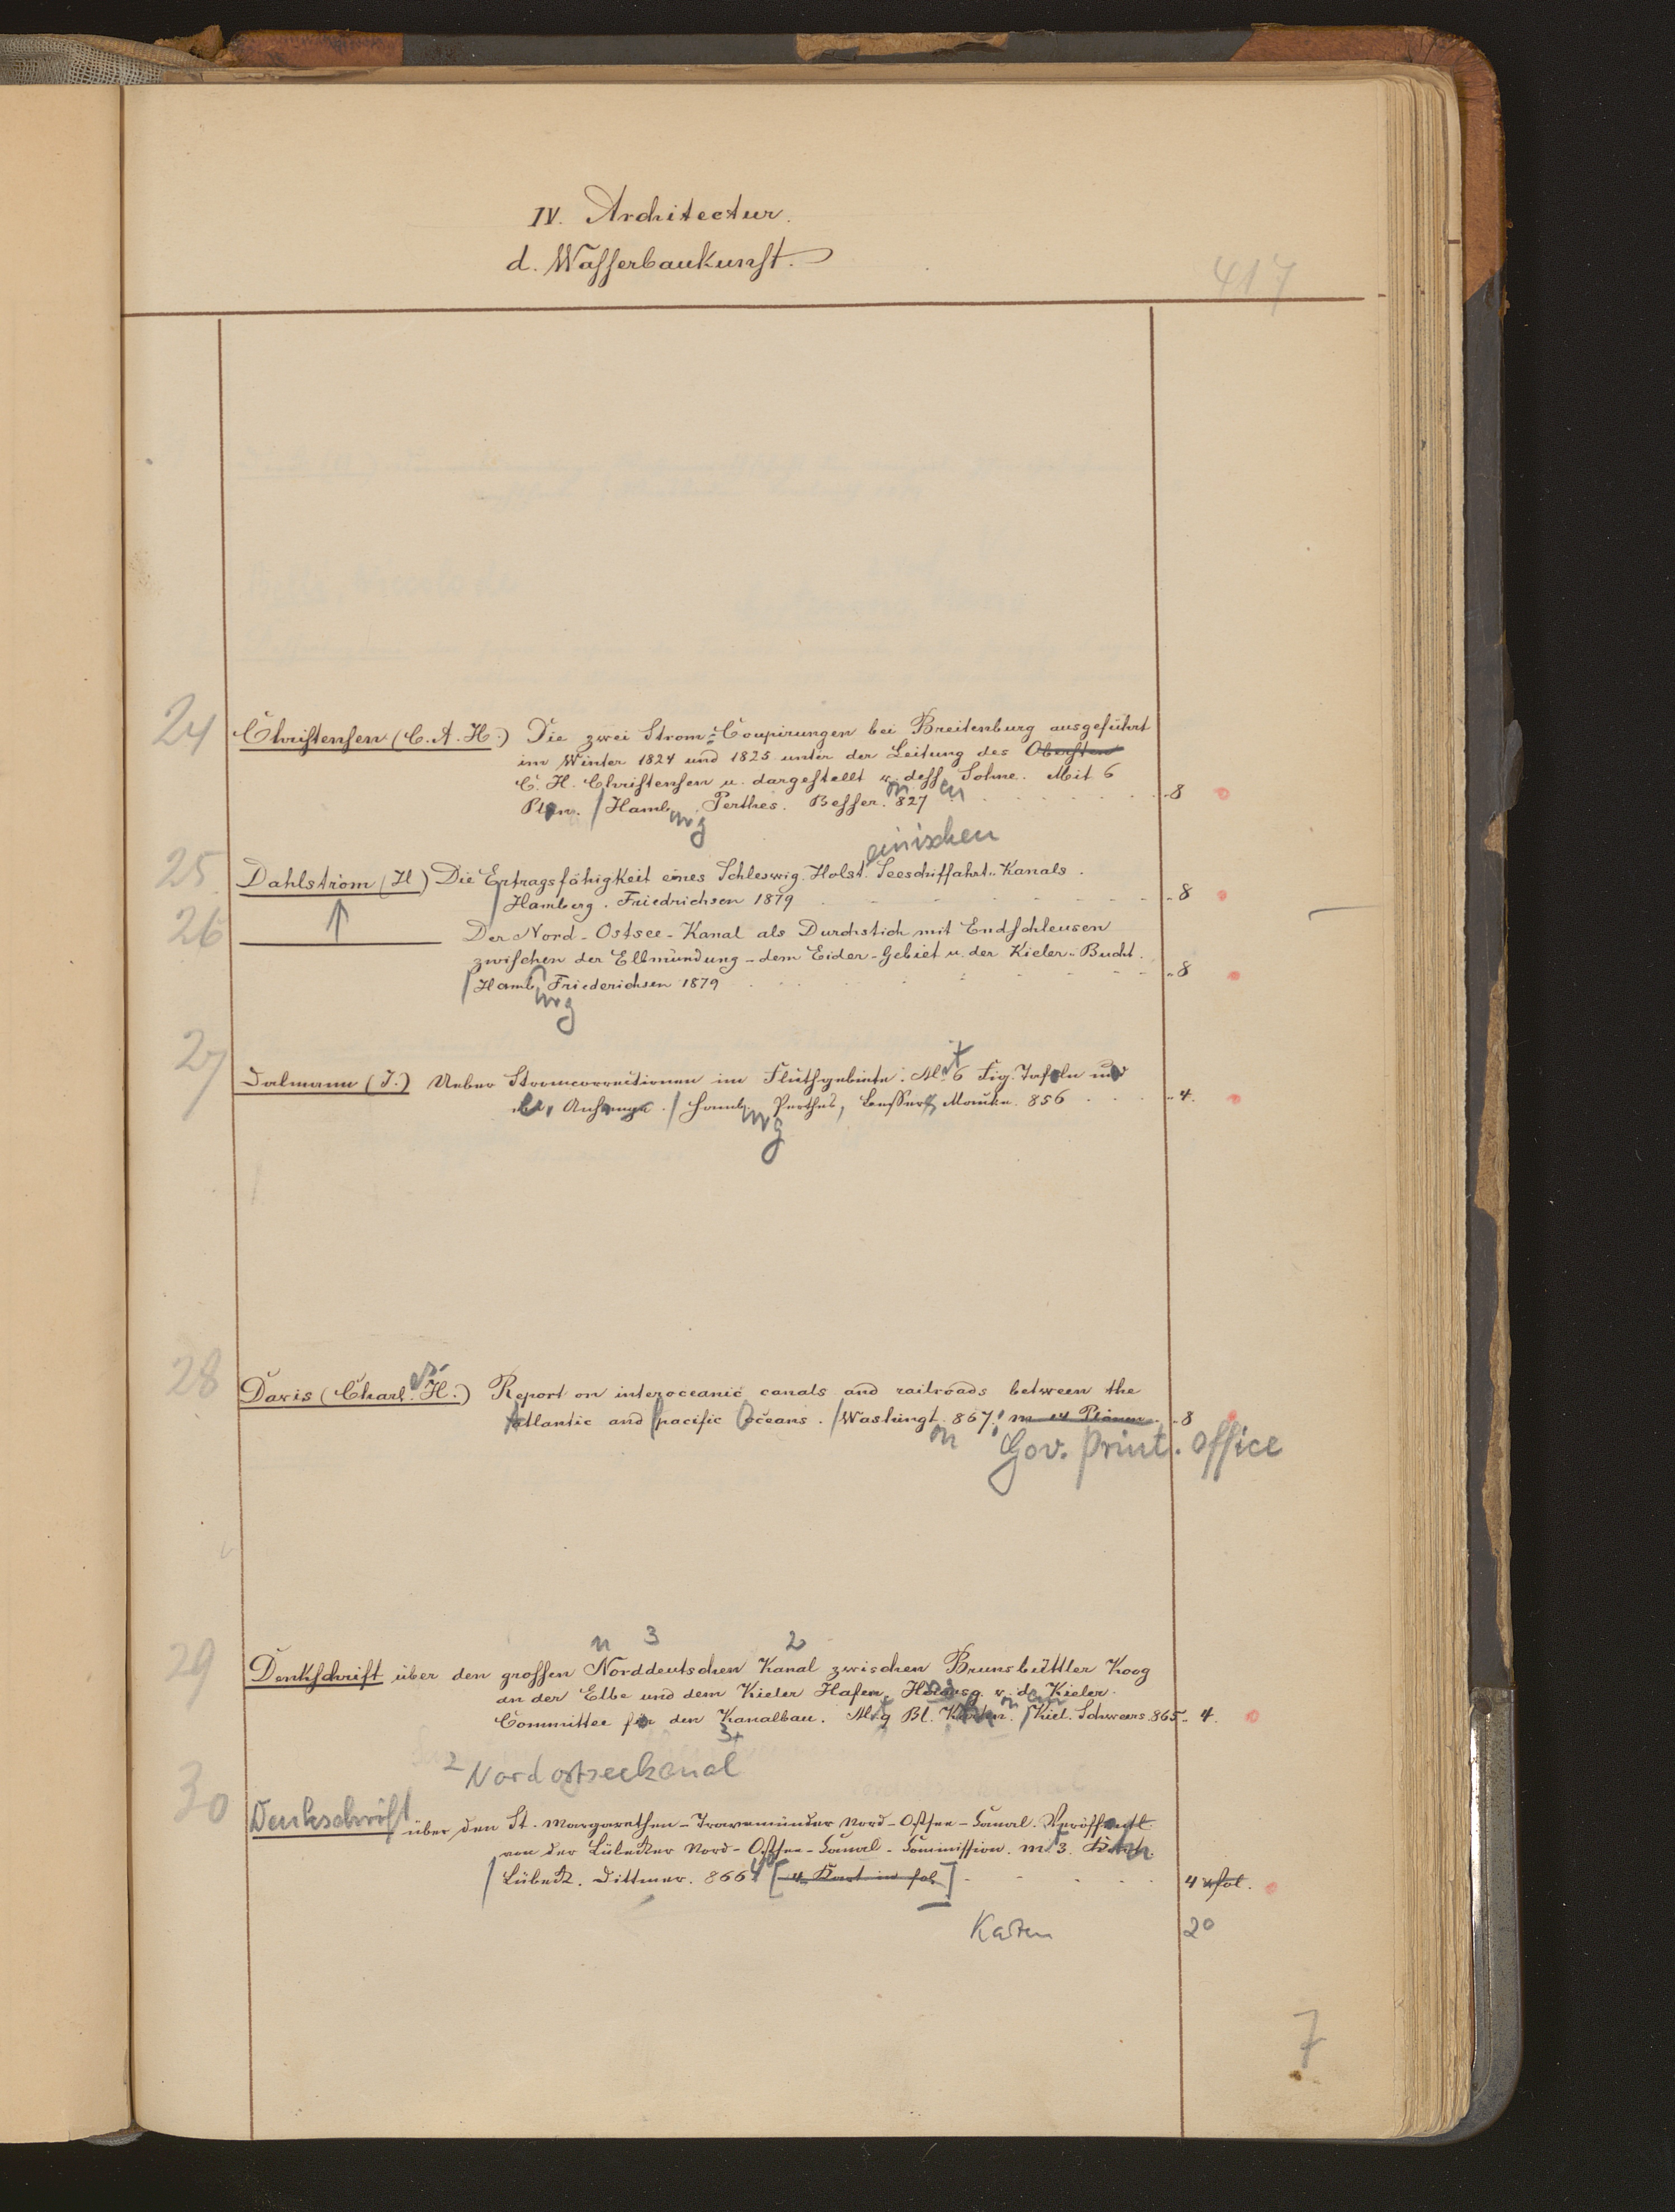 IV. Architectur.
d. Wasserbaukunst.
417
24 Christensen (C. A. H.) Die zwei Strom-Coupirungen bei Breitenburg ausgeführt
im Winter 1824 und 1825 unter der Leitung des Obersten
C. H. Christensen u. dargestellt v. dess Sohne. Mit 6
on en
Plän. / Hamb Perthes. Besser. 827 8
urg
einischen
25 Dahlström (H) Die Ertragsfähigkeit eines Schleswig-Holst. Seeschiffahrt-Kanals.
/ Hamburg. Friedrichsen 1879 8
26 Der Nord-Ostsee-Kanal als Durchstich mit Endschleusen
zwischen der Elbmündung - dem Eider-Gebiet u. der Kieler-Bucht.
/ Hamb Friederichsen 1879 8
urg
27 Dalmann (J.) Ueber Stromcorrectionen im Fluthgebiete. Mit 6 Fig. Tafeln und
Anhange. / Hamb Perthes, Besser & Mauke. 856 4.
urg
28 Davis (Charl. H.) Report on interoceanic canals and railroads between the
Atlantic and pacific Oceans. / Washingt. 867. m 14 Plänen 8
on Gov. print. office
n 3 2
29 Denkschrift über den grossen Norddeutschen Kanal zwischen Brunsbüttler Koog
an der Elbe und dem Kieler Hafen. v. d. Kieler
Committee für den Kanalbau. Mit 9 Bl. Karten. / Kiel. Schwers. 865. 4.
2 Nordostseekanal
30 Denkschrift über den St. Margarethen-Travemünder Nord-Ostsee-Canal. Veröffentl.
von der Lübecker Nord-Ostsee-Canal-Commission. mit 3.
/ Lübeck. Dittmer. 866 [4 Kart in fol] 4 u fol.
Karten 2°
7